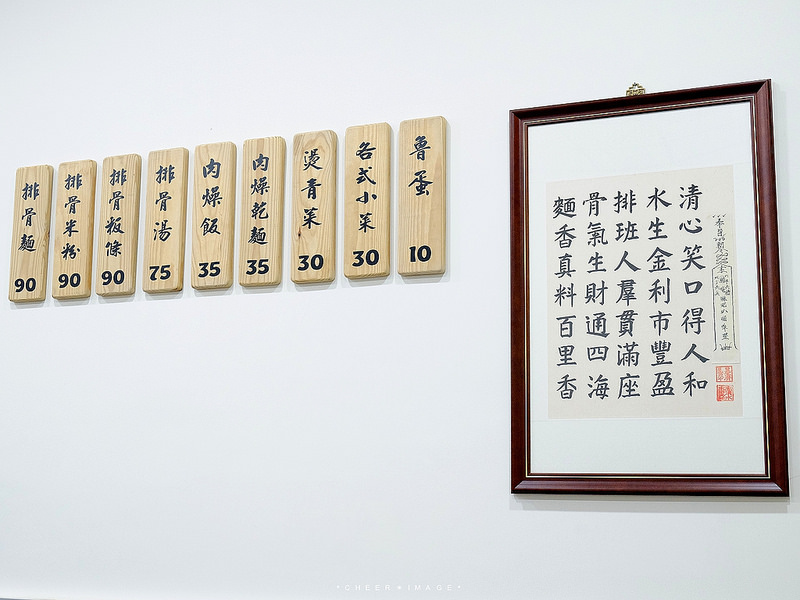 排骨麵 90
排骨米粉 90
排骨粄條 90
排骨湯 75
肉燥飯 35
肉燥乾麵 35
燙青菜 30
各式小菜 30
魯蛋 10
清心笑口得人和
水生金利市豐盈
排班人羣貫滿座
骨氣生財通四海
麵香真料百里香
*CHEER*IMAGE*